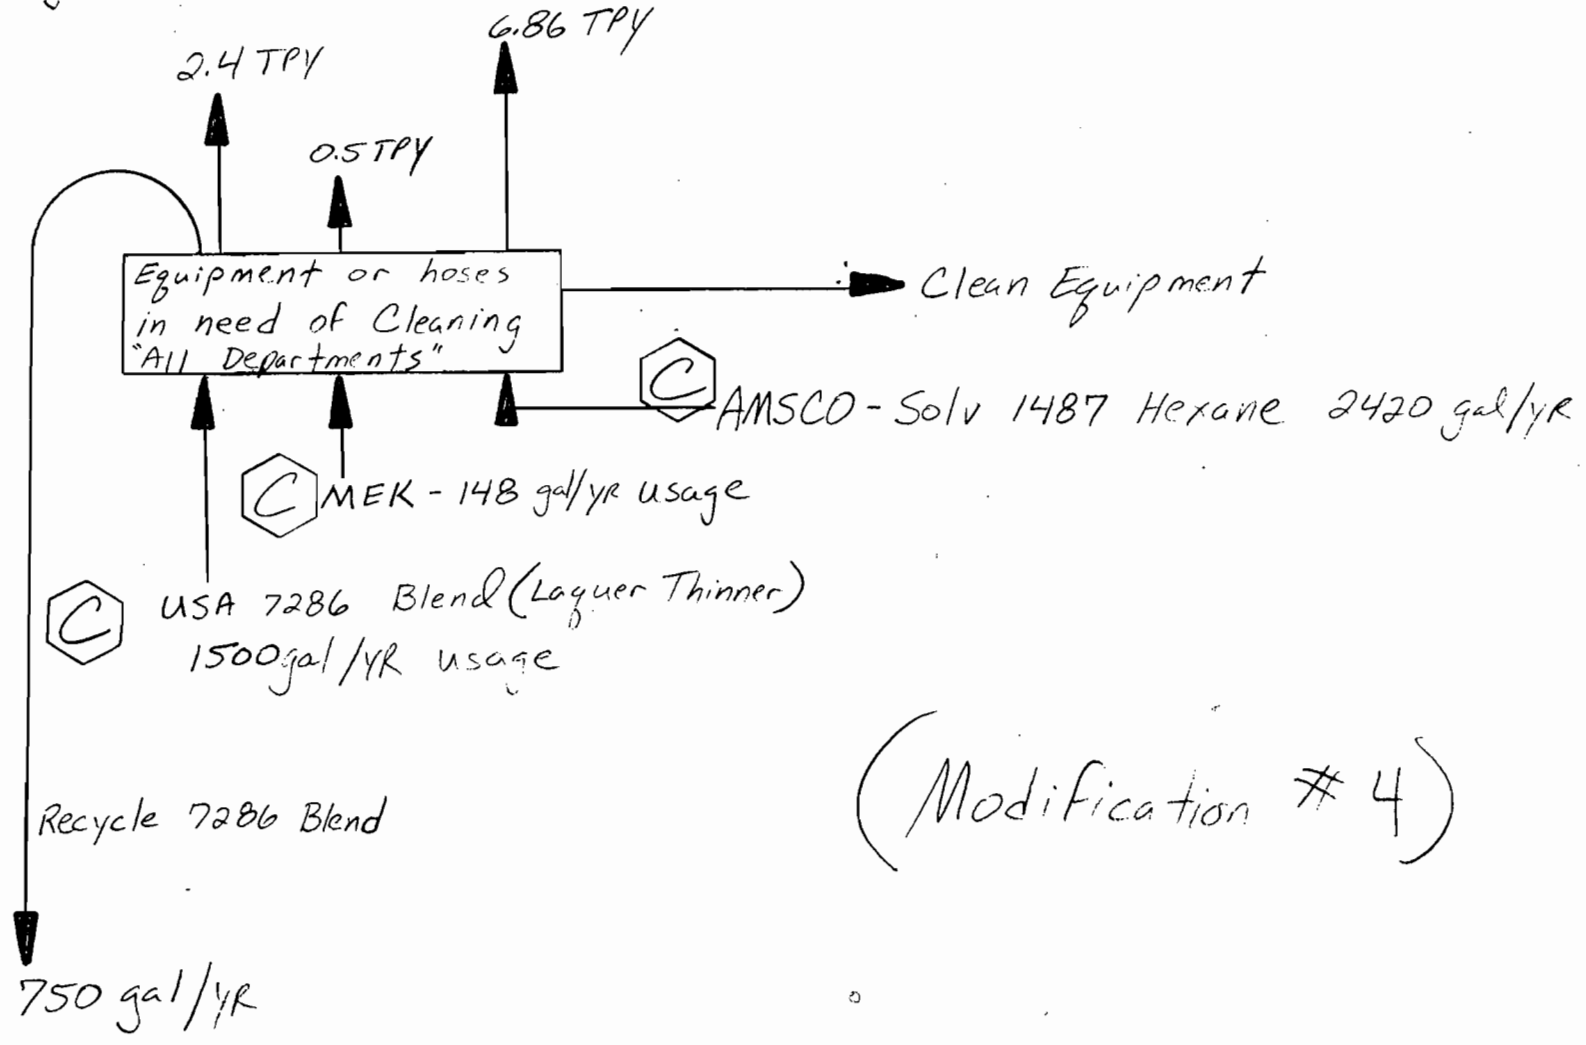 6.86 TPY
2.4 TPY
0.5 TPY
Equipment or hoses
in need of Cleaning
"All Departments"
Clean Equipment
C
AMSCO - Solv 1487 Hexane 2420 gal/yR
C
MEK - 148 gal/yR usage
C
USA 7286 Blend (Laquer Thinner)
1500 gal/YR usage
(Modification # 4)
Recycle 7286 Blend
750 gal/yR